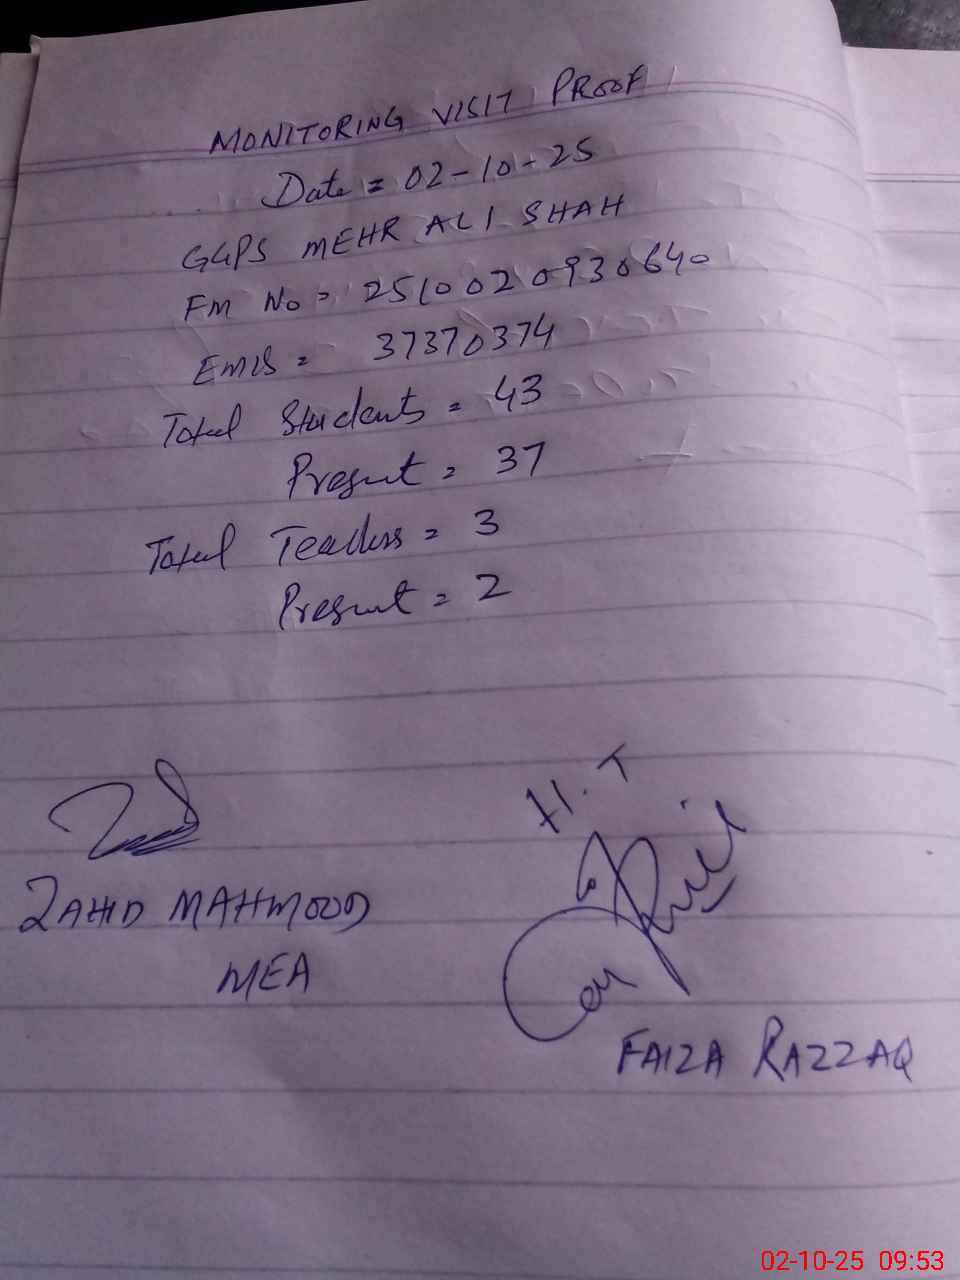 MONITORING VISIT PROOF
Date = 02-10-25
GGPS MEHR ALI SHAH
FM No = 2510020930640
EMIS = 37370374
Total Students = 43
Present = 37
Total Teachers = 3
Present = 2
H.T
ZAHID MAHMOOD
MEA
FAIZA RAZZAQ
02-10-25 09:53